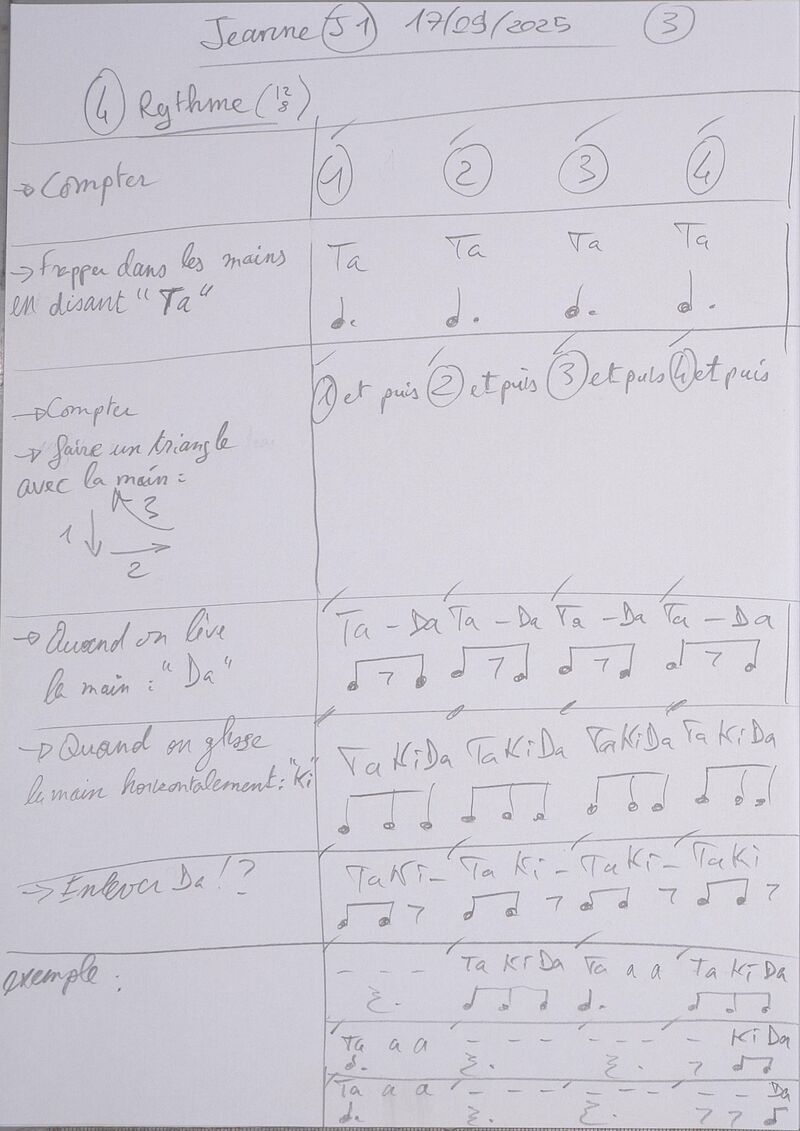 Jeanne J1 17/09/2025 3
4 Rythme (12/8)
→ Compter 1 2 3 4
→ Frapper dans les mains
en disant "Ta"
Ta Ta Ta Ta
→ Compter
→ faire un triangle
avec la main :
1 et puis 2 et puis 3 et puis 4 et puis
3
1
2
→ Quand on lève
la main : "Da"
Ta - Da Ta - Da Ta - Da Ta - Da
→ Quand on glisse
la main horizontalement : "Ki"
Ta Ki Da Ta Ki Da Ta Ki Da Ta Ki Da
→ Enlever Da !?
Ta Ki - Ta Ki - Ta Ki - Ta Ki
exemple :
- - - Ta Ki Da Ta a a Ta Ki Da
Ta a a - - - - - - - Ki Da
Ta a a - - - - - - - - Da